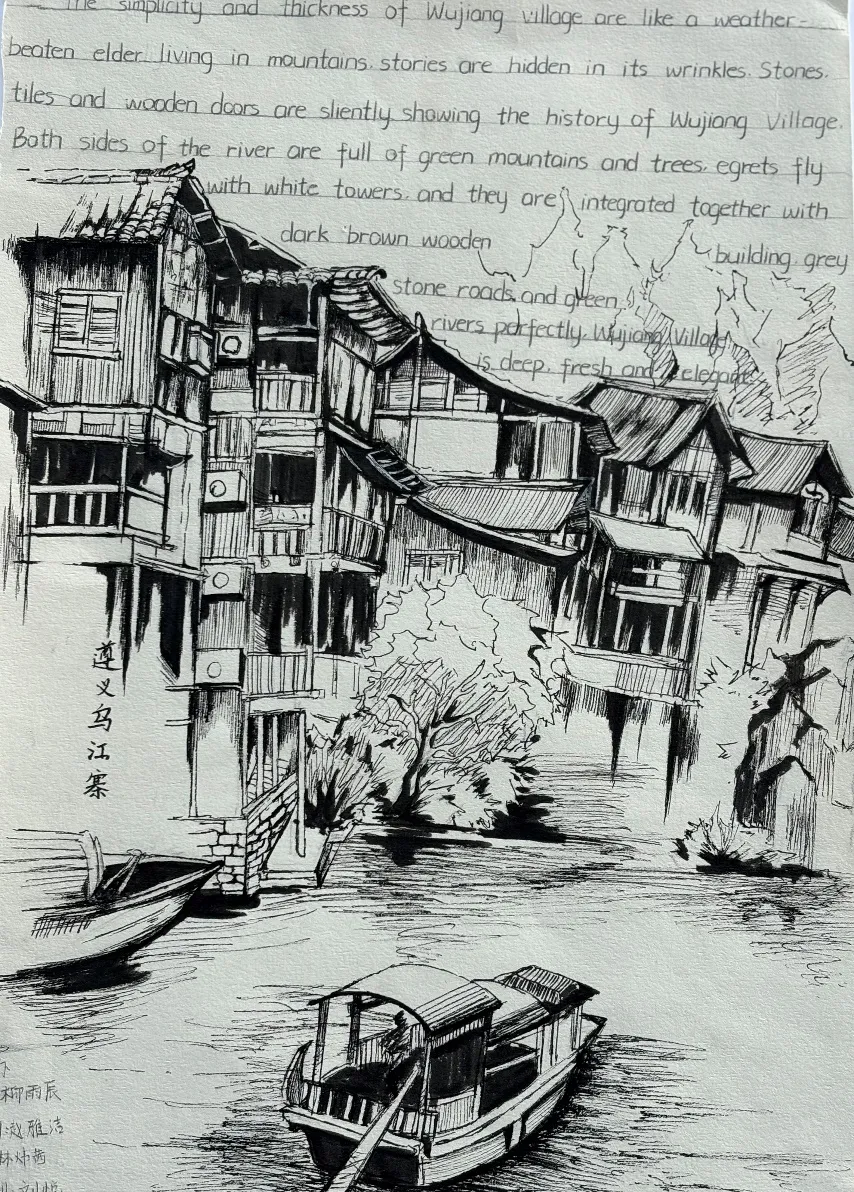 The simplicity and thickness of Wujiang village are like a weather-
beaten elder living in mountains. stories are hidden in its wrinkles. Stones,
tiles and wooden doors are sliently showing the history of Wujiang Village.
Both sides of the river are full of green mountains and trees. egrets fly
with white towers. and they are integrated together with
dark brown wooden building. grey
stone roads and green
rivers perfectly. Wujiang Village
is deep, fresh and elegant.
遵义乌江寨
柳雨辰
雅洁